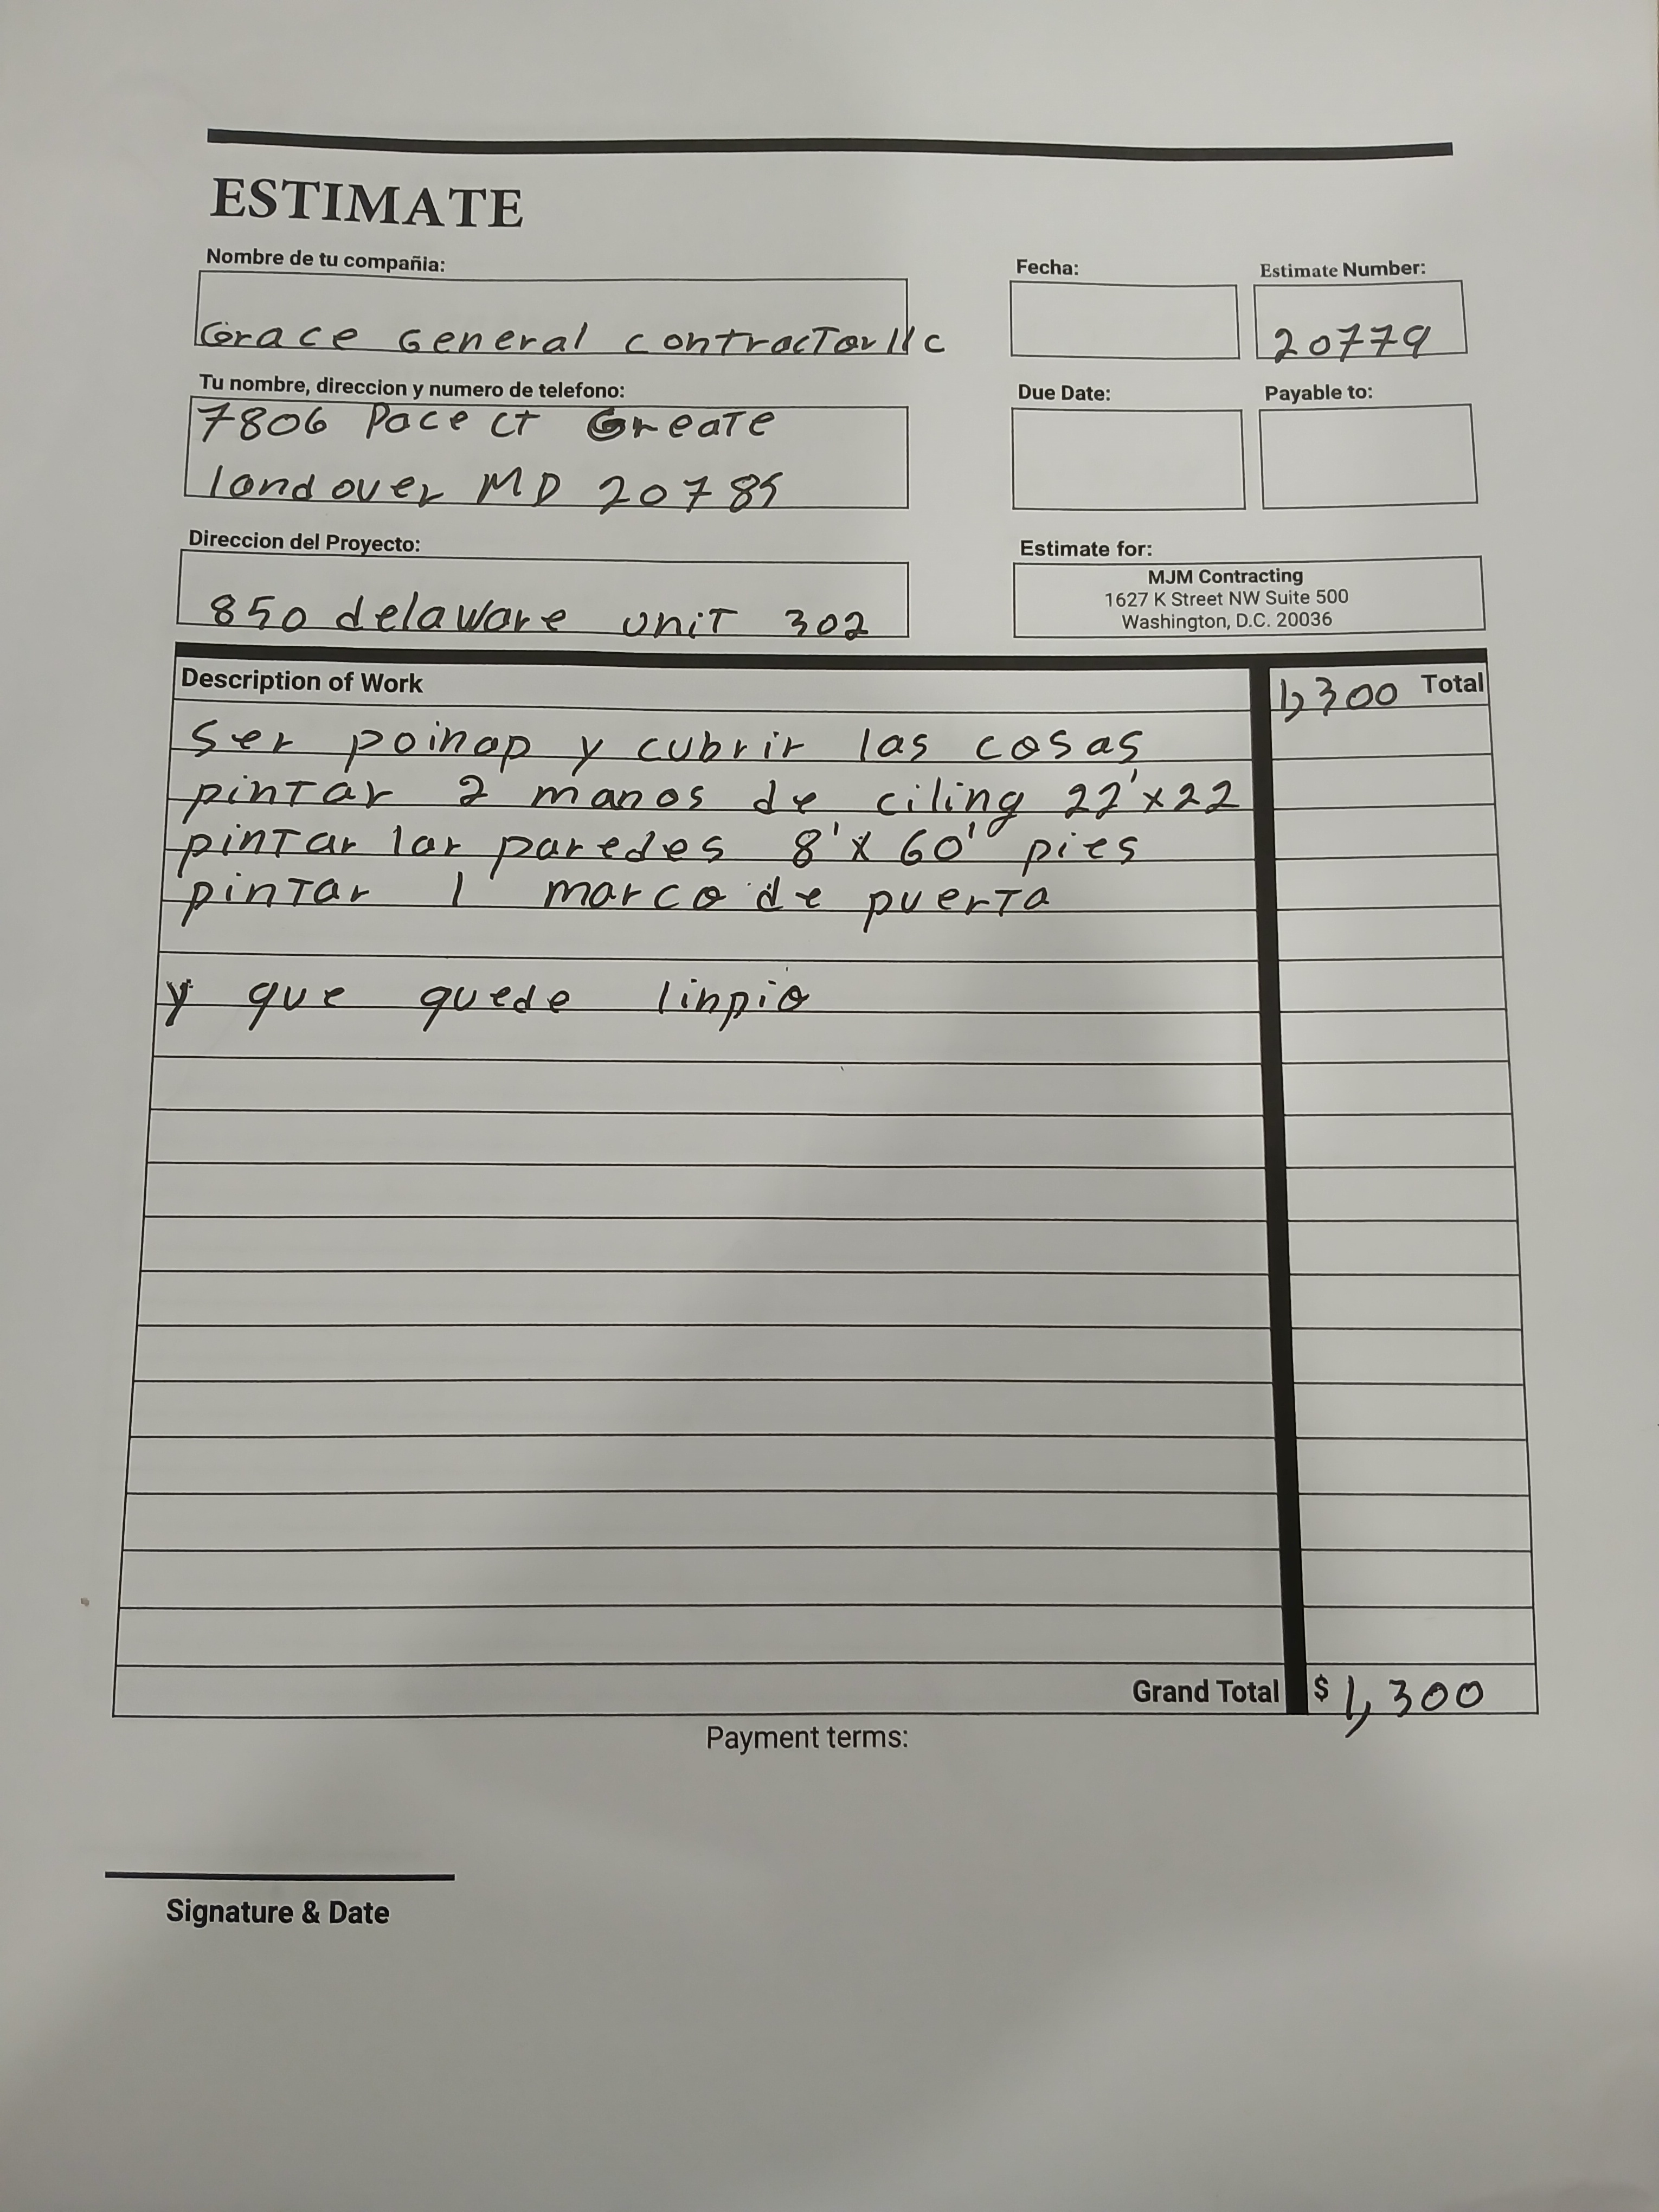 ESTIMATE
Nombre de tu compañia:
Grace General contractor llc
Fecha:
Estimate Number:
20779
Tu nombre, direccion y numero de telefono:
7806 Pace ct Greate
landover MD 20785
Due Date:
Payable to:
Direccion del Proyecto:
850 delaware unit 302
Estimate for:
MJM Contracting
1627 K Street NW Suite 500
Washington, D.C. 20036
Description of Work
1,300 Total
ser poinap y cubrir las cosas
pintar 2 manos de ciling 22'x22
pintar lar paredes 8'x60' pies
pintar 1 marco de puerta
y que quede linpio
Grand Total $ 1,300
Payment terms:
Signature & Date